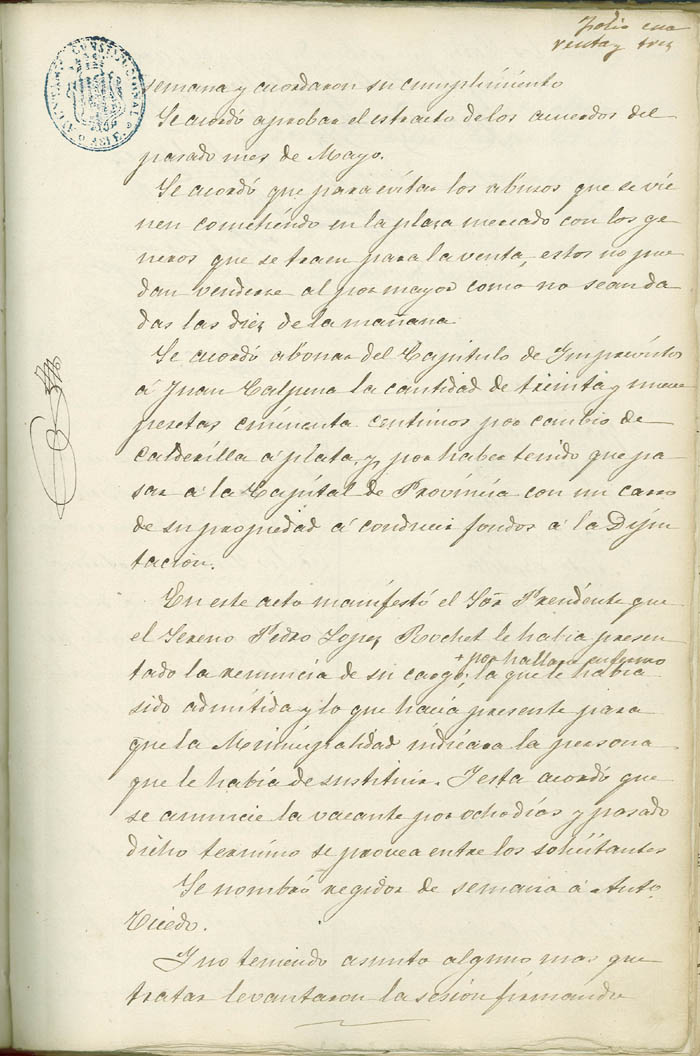 Folio cua
renta y tres
AYUNTAMIENTO CONSTITUCIONAL
semana y acordaron su cumplimiento
Se acordó aprobar el estracto de los acuerdos del
pasado mes de Mayo.
Se acordó que para evitar los abusos que se vie
nen cometiendo en la plaza mercado con los ge
neros que se traen para la venta, estos no pue
dan venderse al por mayor como no sean da
das las diez de la mañana
Se acordó abonar del Capitulo de Imprevistos
á Juan Calpena la cantidad de treinta y nueve
pesetas cincuenta centimos por cambio de
calderilla a plata, y por haber tenido que pa
sar á la Capital de Provincia con un carro
de su propiedad á conducir fondos á la Dipu
tacion.
En este acto manifestó el Sor Presidente que
el Sereno Pedro Lopez Rochet le habia presen
+ por hallarse enfermo
tado la renuncia de su cargo + la que le habia
sido admitida y lo que hacia presente para
que la Municipalidad indicara la persona
que le habia de sustituir. Y esta acordó que
se anuncie la vacante por ocho dias y pasado
dicho termino se provea entre los solicitantes
Se nombró regidor de semana á Anto.
Cicedo.
Y no teniendo asunto alguno mas que
tratar levantaron la sesion firmando